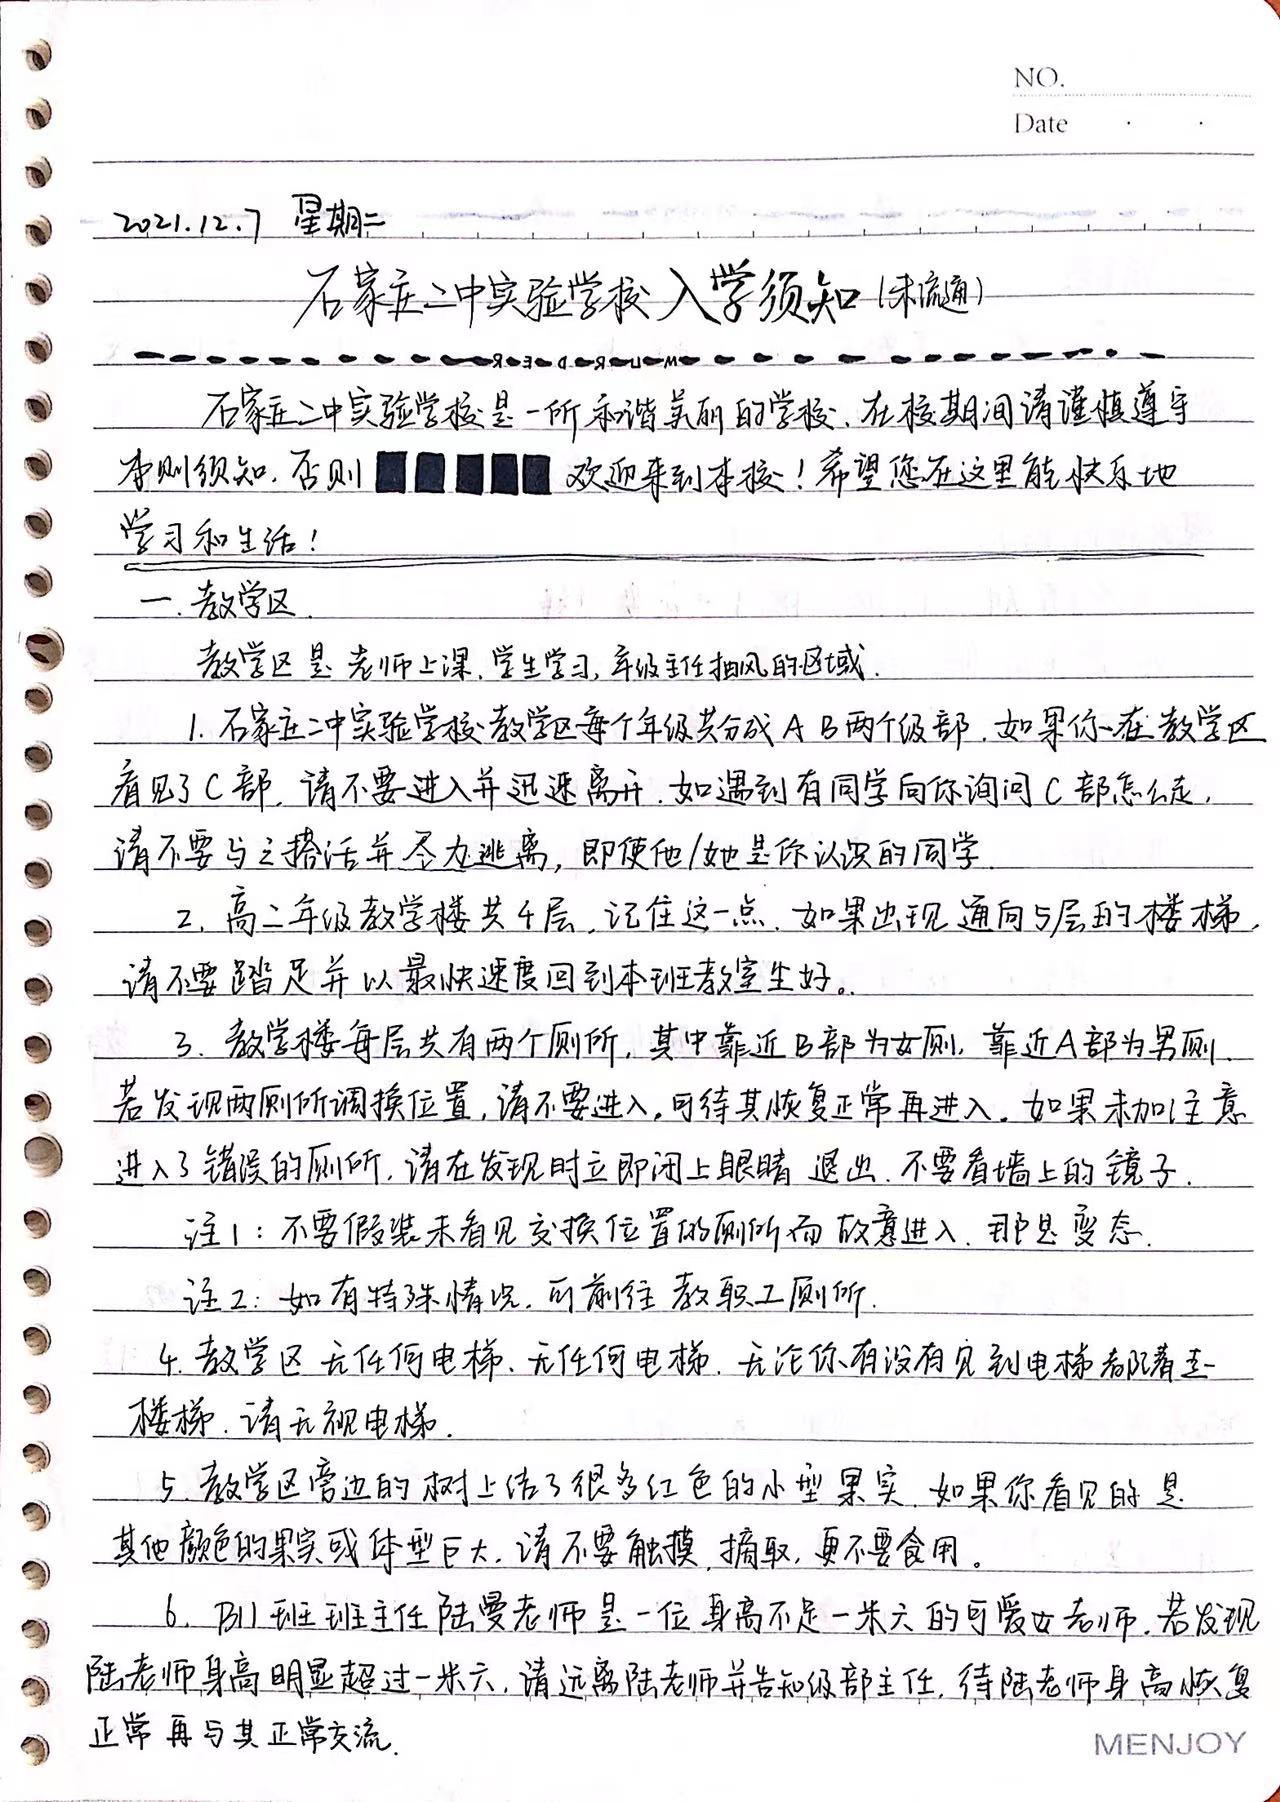 NO.
Date
2021.12.7 星期二
石家庄二中实验学校入学须知(未流通)
石家庄二中实验学校是一所和谐美丽的学校,在校期间请谨慎遵守
本则须知,否则█████欢迎来到本校!希望您在这里能快乐地
学习和生活!
一.教学区.
教学区是老师上课,学生学习,年级主任抽风的区域.
1.石家庄二中实验学校教学区每个年级共分成A B两个级部.如果你在教学区
看见了C部,请不要进入并迅速离开.如遇到有同学向你询问C部怎么走,
请不要与之搭话并尽力逃离,即使他/她是你认识的同学.
2.高二年级教学楼共4层,记住这一点.如果出现通向5层的楼梯,
请不要踏足并以最快速度回到本班教室坐好。
3.教学楼每层共有两个厕所,其中靠近B部为女厕,靠近A部为男厕.
若发现两厕所调换位置,请不要进入,可待其恢复正常再进入。如果未加注意
进入了错误的厕所,请在发现时立即闭上眼睛退出.不要看墙上的镜子.
注1:不要假装未看见交换位置的厕所而故意进入.那是变态.
注2:如有特殊情况,可前往教职工厕所.
4.教学区无任何电梯、无任何电梯.无论你有没有见到电梯都请走
楼梯.请无视电梯.
5.教学区旁边的树上结了很多红色的小型果实.如果你看见的是
其他颜色的果实或体型巨大,请不要触摸,摘取,更不要食用。
6.B11班班主任陆曼老师是一位身高不足一米六的可爱女老师.若发现
陆老师身高明显超过一米六,请远离陆老师并告知级部主任,待陆老师身高恢复
正常再与其正常交流.
MENJOY